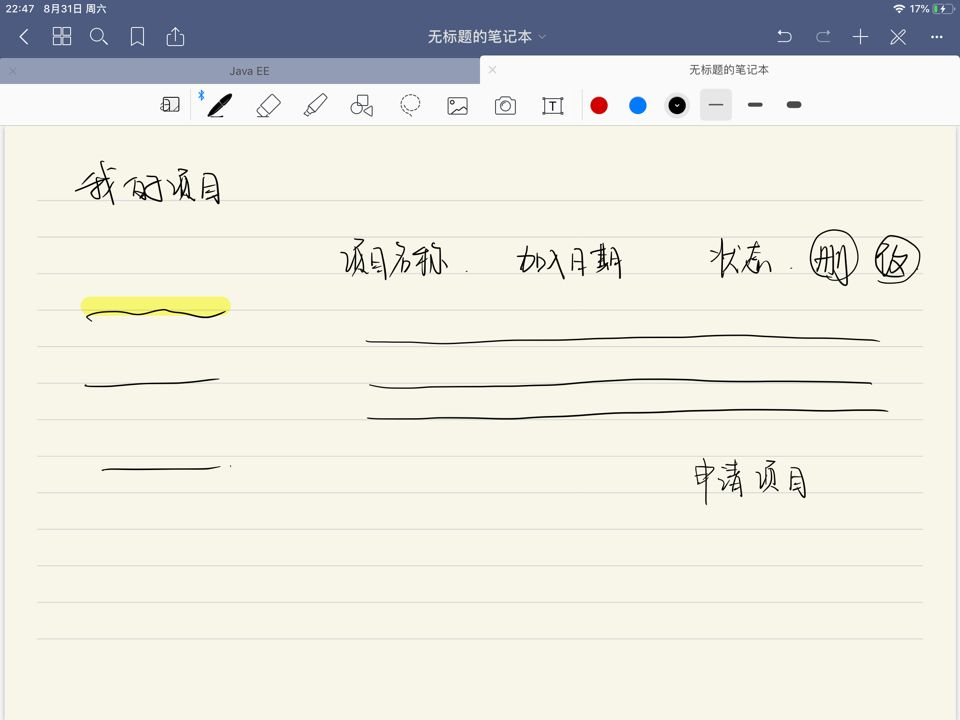 22:47 8月31日 周六 17%
无标题的笔记本
Java EE 无标题的笔记本
T
我的项目
项目名称 加入日期 状态 删 改
申请项目